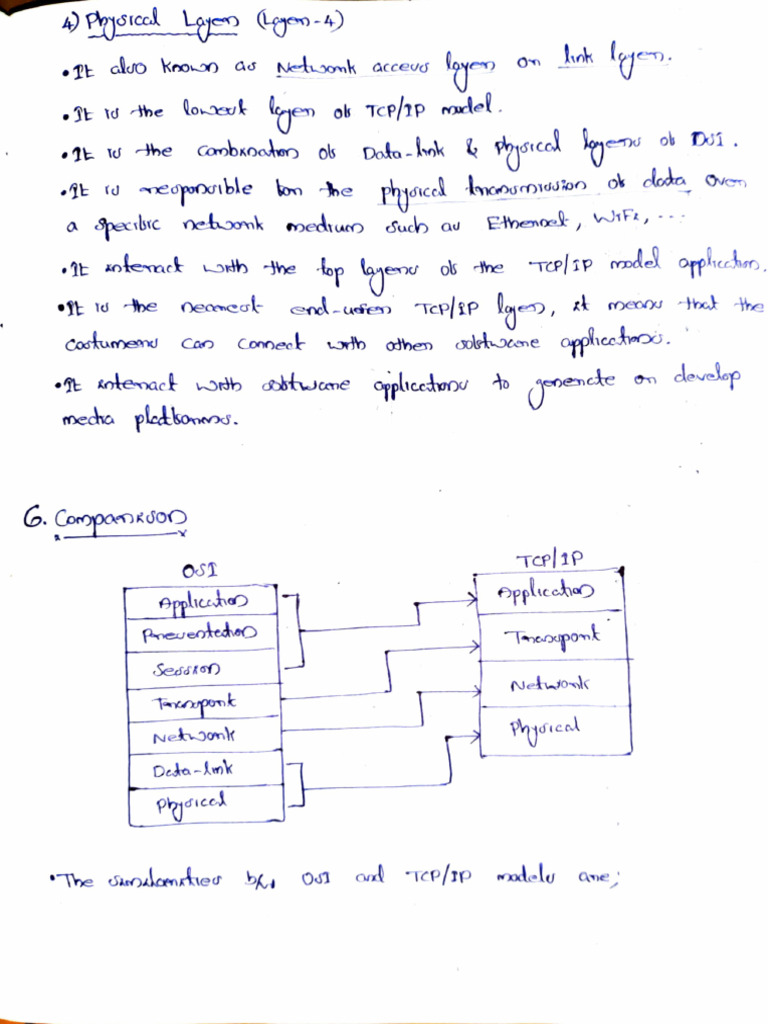 4) Physical Layer (Layer-4)
•It also known as Network access layer or link layer.
•It is the lowest layer of TCP/IP model.
•It is the combination of Data-link & Physical layers of OSI.
•It is responsible for the physical transmission of data over
a specific network medium such as Ethernet, WiFi, ...
•It interact with the top layers of the TCP/IP model application.
•It is the nearest end-user TCP/IP layer, it means that the
costumers can connect with other software applications.
•It interact with software applications to generate or develop
media platforms.
6. Comparison
OSI
TCP/IP
Application
Presentation
Session
Transport
Network
Data-link
Physical
Application
Transport
Network
Physical
•The similarities b/w OSI and TCP/IP models are;